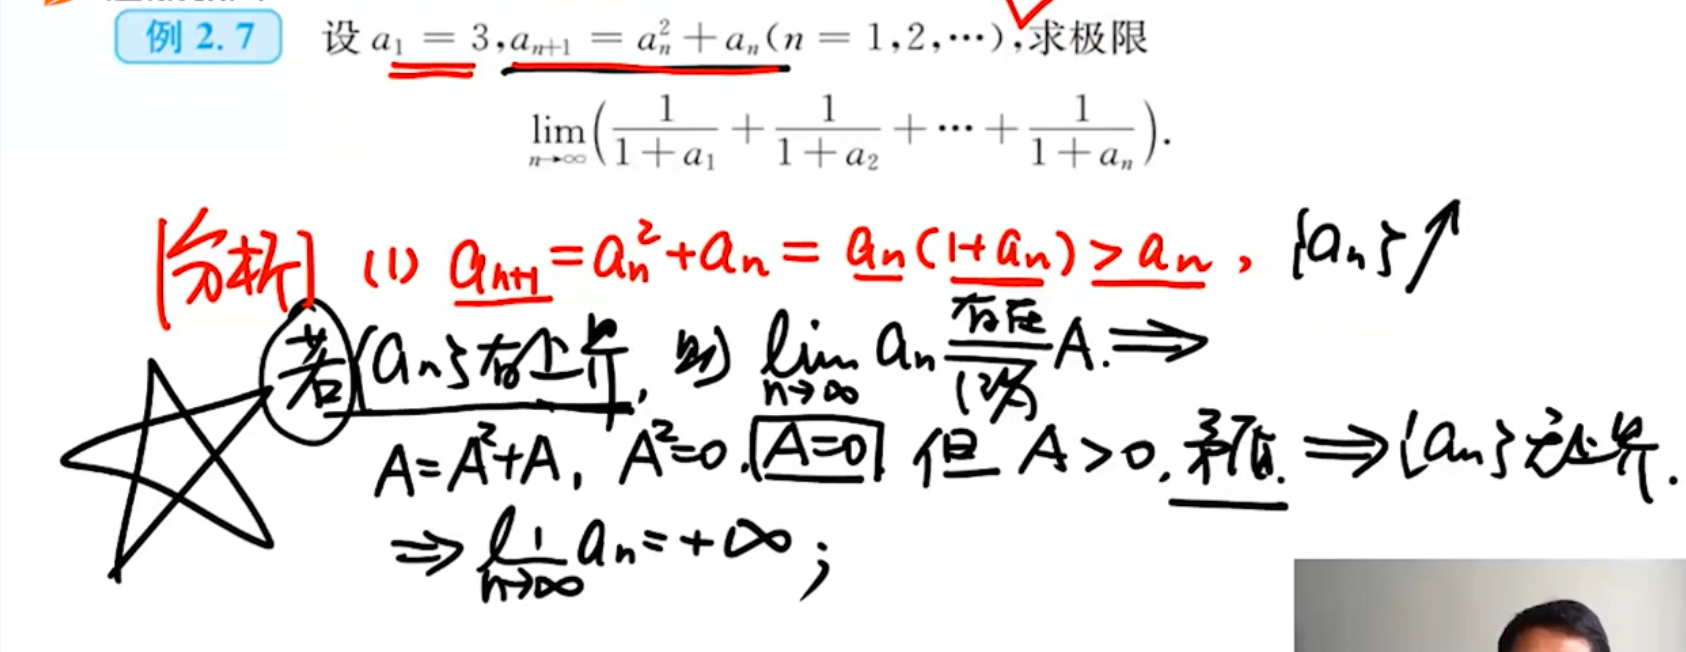 例 2.7 设 a₁ = 3, aₙ₊₁ = aₙ² + aₙ (n = 1,2,⋯), 求极限
lim n→∞ (1/(1+a₁) + 1/(1+a₂) + ⋯ + 1/(1+aₙ)).
[分析] (1) aₙ₊₁ = aₙ² + aₙ = aₙ(1+aₙ) > aₙ, {aₙ}↗
若{aₙ}有上界, 则 lim n→∞ aₙ 存在 记为 A. ⟹
A=A²+A, A²=0, A=0 但 A>0, 矛盾. ⟹ {aₙ}无上界.
⟹ lim n→∞ aₙ = +∞;